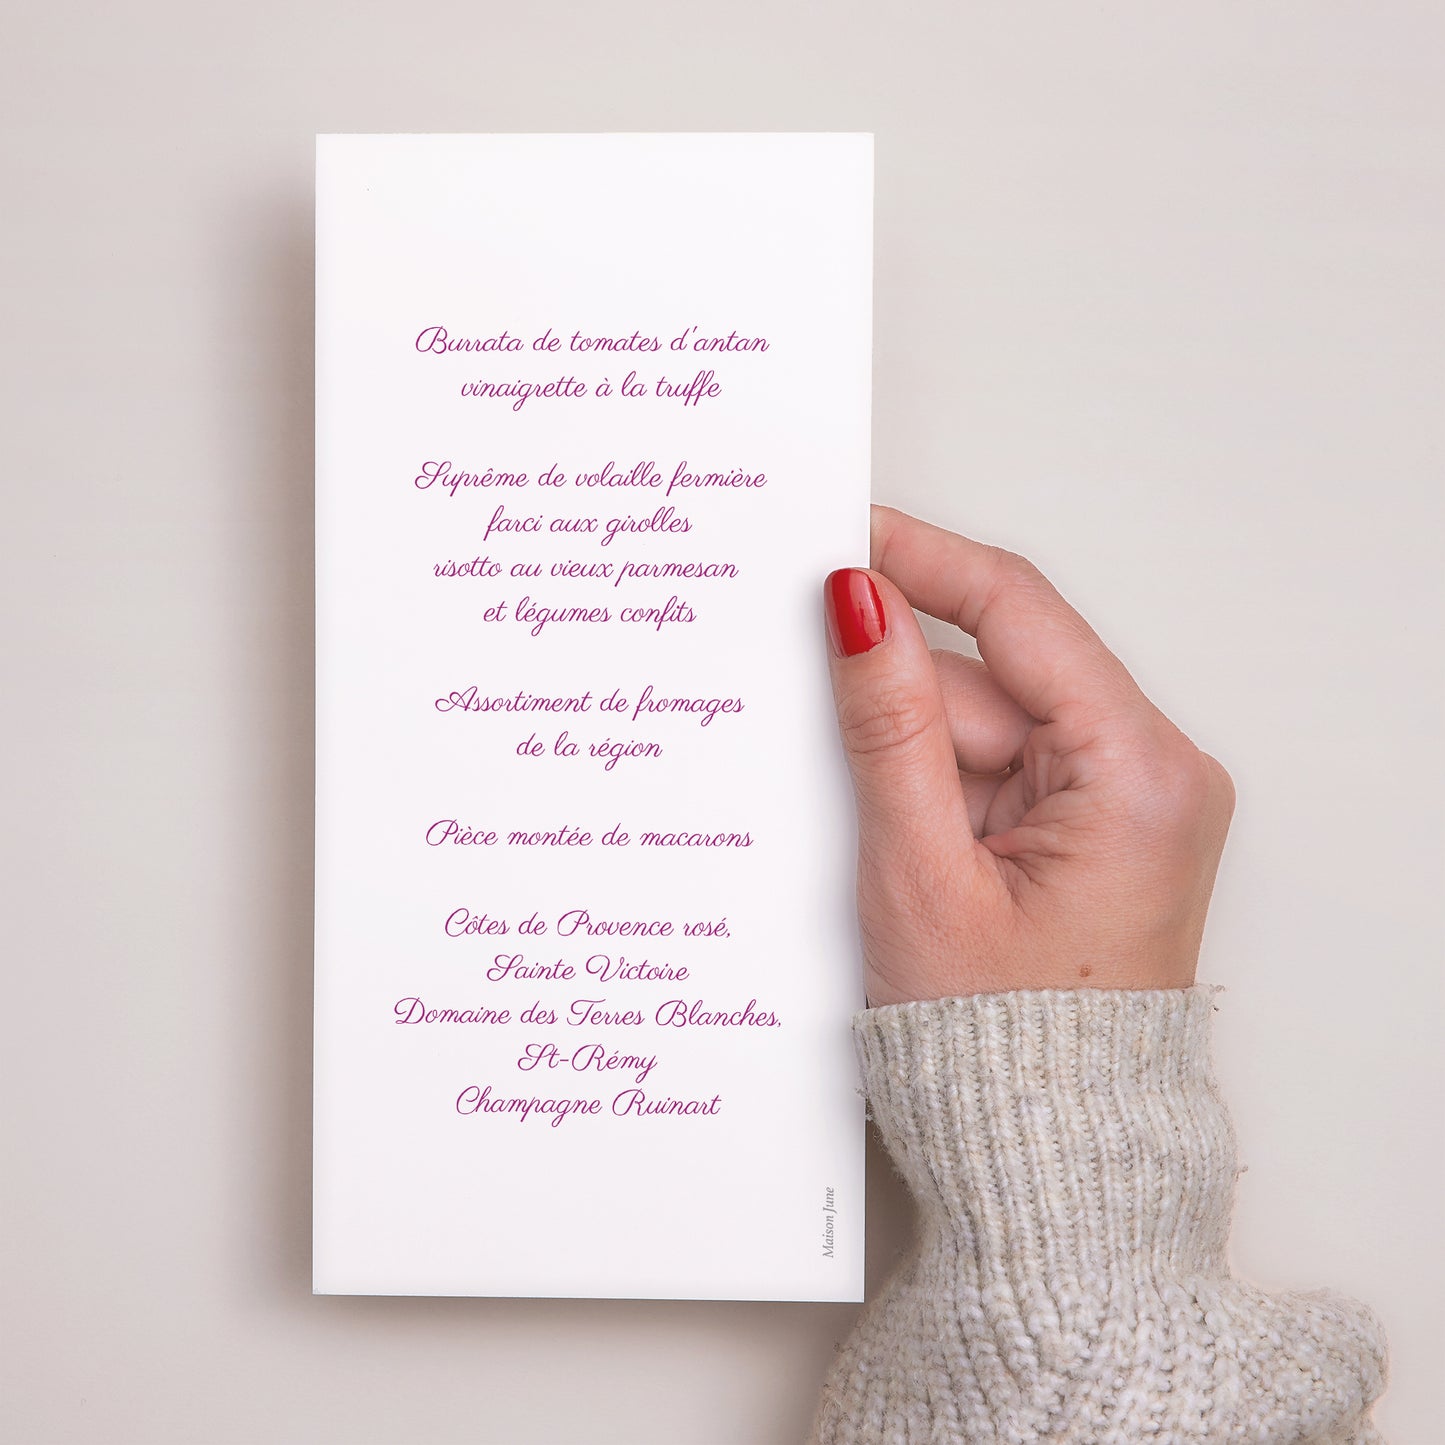 Burrata de tomates d'antan
vinaigrette à la truffe
Suprême de volaille fermière
farci aux girolles
risotto au vieux parmesan
et légumes confits
Assortiment de fromages
de la région
Pièce montée de macarons
Côtes de Provence rosé,
Sainte Victoire
Domaine des Terres Blanches,
St-Rémy
Champagne Ruinart
Maison June